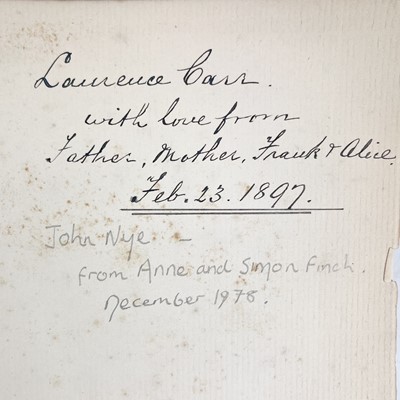 Laurence Carr.
with love from
Father, Mother, Frank & Alice.
Feb. 23. 1897.
John Nye –
from Anne and Simon Finch.
December 1978.